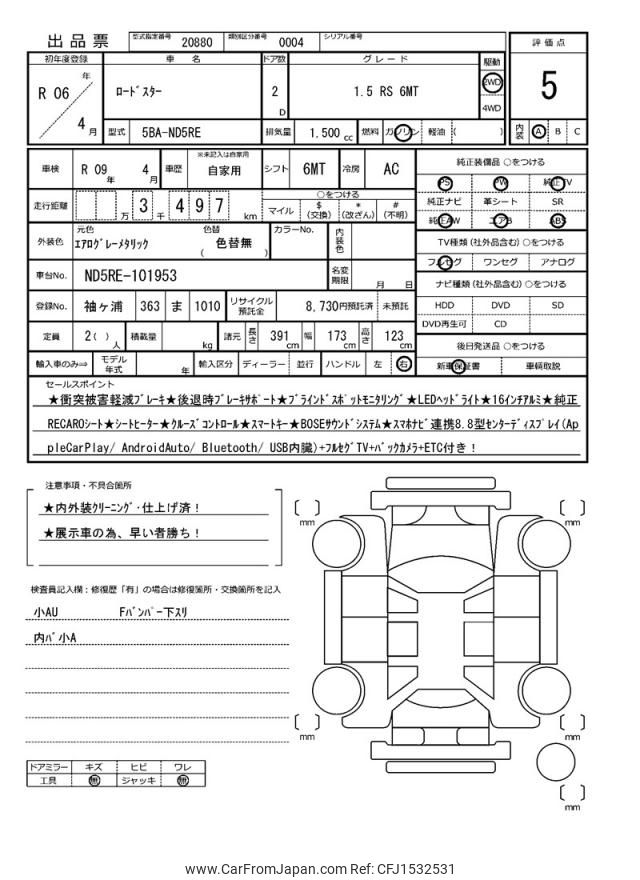 出品票
型式指定番号 20880 類別区分番号 0004 シリアル番号
評価点
5
内装 A B C
初年度登録 車名 ドア数 グレード 駆動
R 06 年 4 月
ロードスター 2 D 1.5 RS 6MT 2WD 4WD
型式 5BA-ND5RE 排気量 1.500 cc 燃料 ガソリン 軽油 ( )
車検 R 09 年 4 月 車歴 ※未記入は自家用 自家用 シフト 6MT 冷房 AC
走行距離 万 3 千 4 9 7 km
○をつける
マイル $(交換) *(改ざん) #(不明)
外装色 元色 エアログレーメタリック 色替 ( 色替無 ) カラーNo. 内装色
車台No. ND5RE-101953 名変期限 月 日
登録No. 袖ヶ浦 363 ま 1010 リサイクル預託金 8,730円預託済 未預託
定員 2( ) 人 積載量 kg 諸元 長さ 391 cm 幅 173 cm 高さ 123 cm
輸入車のみ⇒ モデル年式 年 輸入区分 ディーラー 並行 ハンドル 左 右
純正装備品 ○をつける
PS PW 純正TV
純正ナビ 革シート SR
純正AW エアB ABS
TV種類(社外品含む)○をつける
フルセグ ワンセグ アナログ
ナビ種類(社外品含む)○をつける
HDD DVD SD
DVD再生可 CD
後日発送品 ○をつける
新車保証書 車輌取説
セールスポイント
★衝突被害軽減ブレーキ★後退時ブレーキサポート★ブラインドスポットモニタリング★LEDヘッドライト★16インチアルミ★純正
RECAROシート★シートヒーター★クルーズコントロール★スマートキー★BOSEサウンドシステム★スマホナビ連携8.8型センターディスプレイ(Ap
pleCarPlay/ AndroidAuto/ Bluetooth/ USB内臓)+フルセグTV+バックカメラ+ETC付き!
注意事項・不具合箇所
★内外装クリーニング・仕上げ済!
★展示車の為、早い者勝ち!
検査員記入欄:修復歴「有」の場合は修復箇所・交換箇所を記入
小AU Fバンパー下スリ
内バ小A
ドアミラー キズ ヒビ ワレ
工具 無 ジャッキ 無
mm mm
mm mm
mm
www.CarFromJapan.com Ref: CFJ1532531